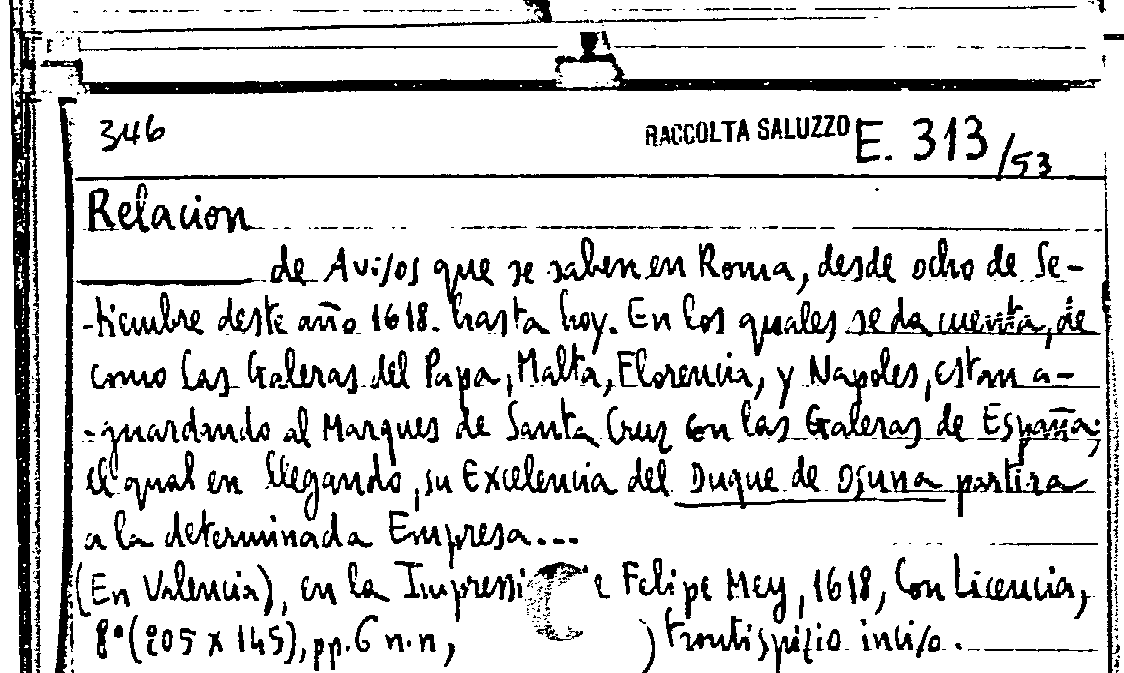 346 RACCOLTA SALUZZO E. 313/53
Relacion
de Avisos que se saben en Roma, desde ocho de Se-
-tiembre deste año 1618. hasta hoy. En los quales se da cuenta, de
como las Galeras del Papa, Malta, Florencia, y Napoles, estan a-
-guardando al Marques de Santa Cruz con las Galeras de España;
el qual en llegando, su Excelencia del Duque de Osuna partira
a la determinada Empresa...
(En Valencia), en la Impressi e Felipe Mey, 1618, Con Licencia,
8° (205 x 145), pp. 6 n.n, ) frontispizio inciso.